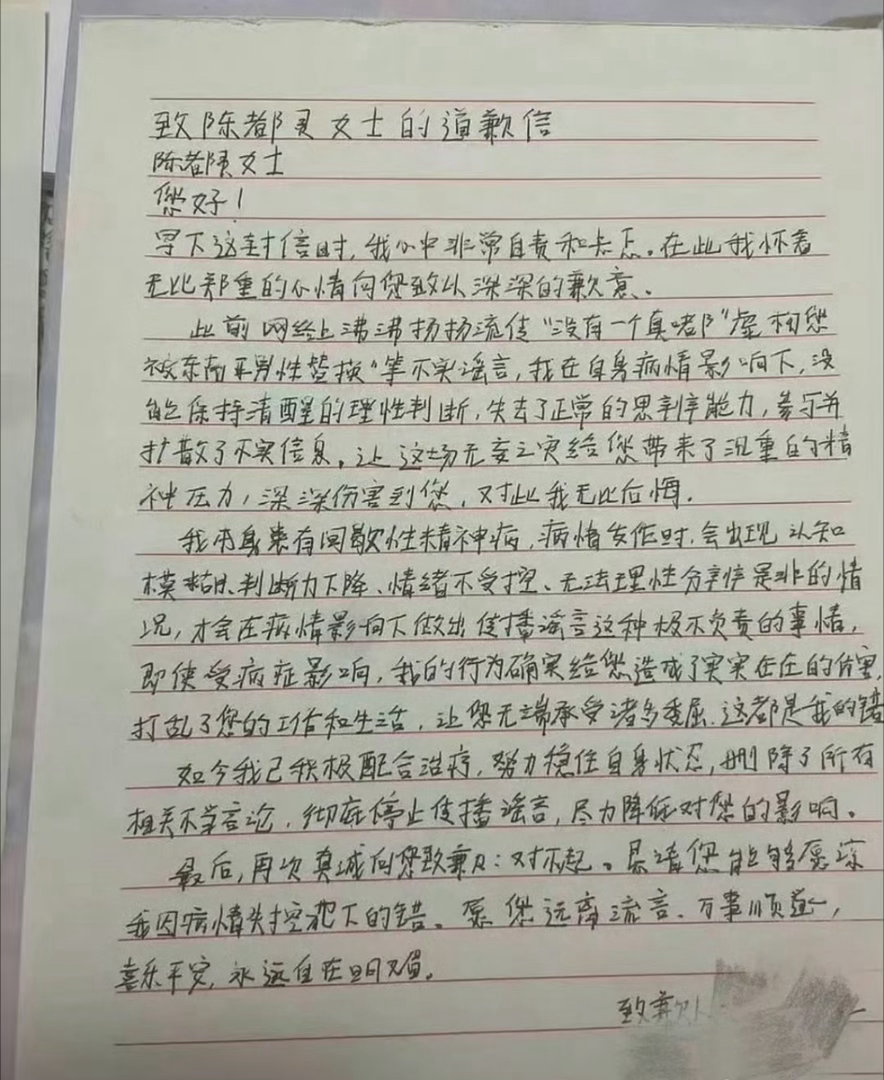 致陈都灵女士的道歉信
陈都灵女士
您好！
写下这封信时，我心中非常自责和忐忑。在此我怀着
无比郑重的心情向您致以深深的歉意、。
此前网络上沸沸扬扬流传“没有一个真嘟”虚构您
被东南亚男性替换“等不实谣言，我在自身病情影响下，没
能保持清醒的理性判断，失去了正常的思辨能力，参与并
扩散了不实信息。让这场无妄之灾给您带来了沉重的精
神压力，深深伤害到您，对此我无比后悔．
我本身患有间歇性精神病，病情发作时，会出现认知
模糊、判断力下降、情绪不受控、无法理性分辨是非的情
况，才会在病情影响下做出传播谣言这种极不负责的事情，
即使受病症影响，我的行为确实给您造成了实实在在的伤害，
打乱了您的工作和生活，让您无端承受诸多委屈．这都是我的错
如今我已积极配合治疗，努力稳住自身状态，删除了所有
相关不当言论，彻底停止传播谣言，尽力降低对您的影响。
最后，再次真诚向您致歉：对不起。恳请您能够原谅
我因病情失控犯下的错。愿您远离流言、万事顺遂，
喜乐平安，永远自在明媚。
致歉人